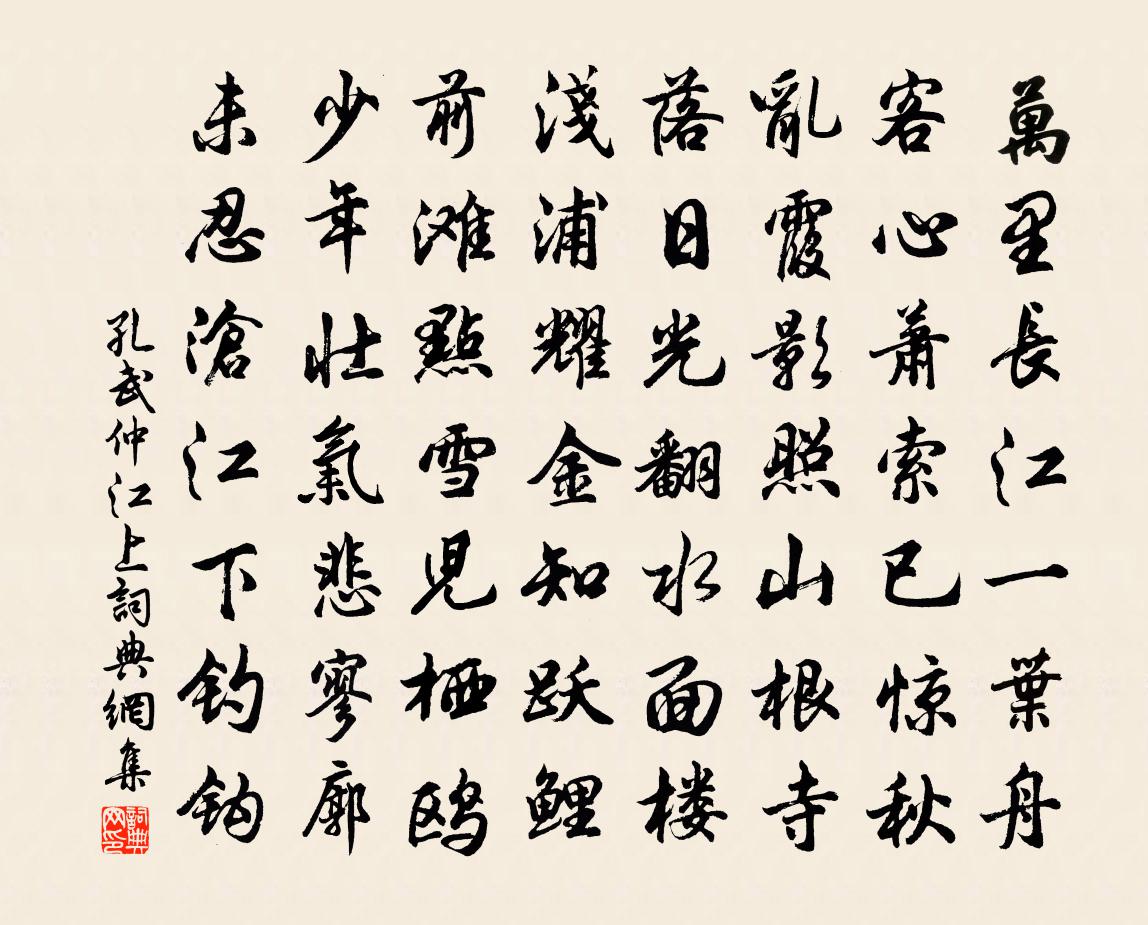 萬里長江一葉舟
客心蕭索已惊秋
亂霞影照山根寺
落日光翻水面楼
淺浦耀金知跃鯉
前滩點雪見栖鸥
少年壮氣悲寥廓
未忍滄江下釣鈎
孔武仲江上詞典網集
詞典网印